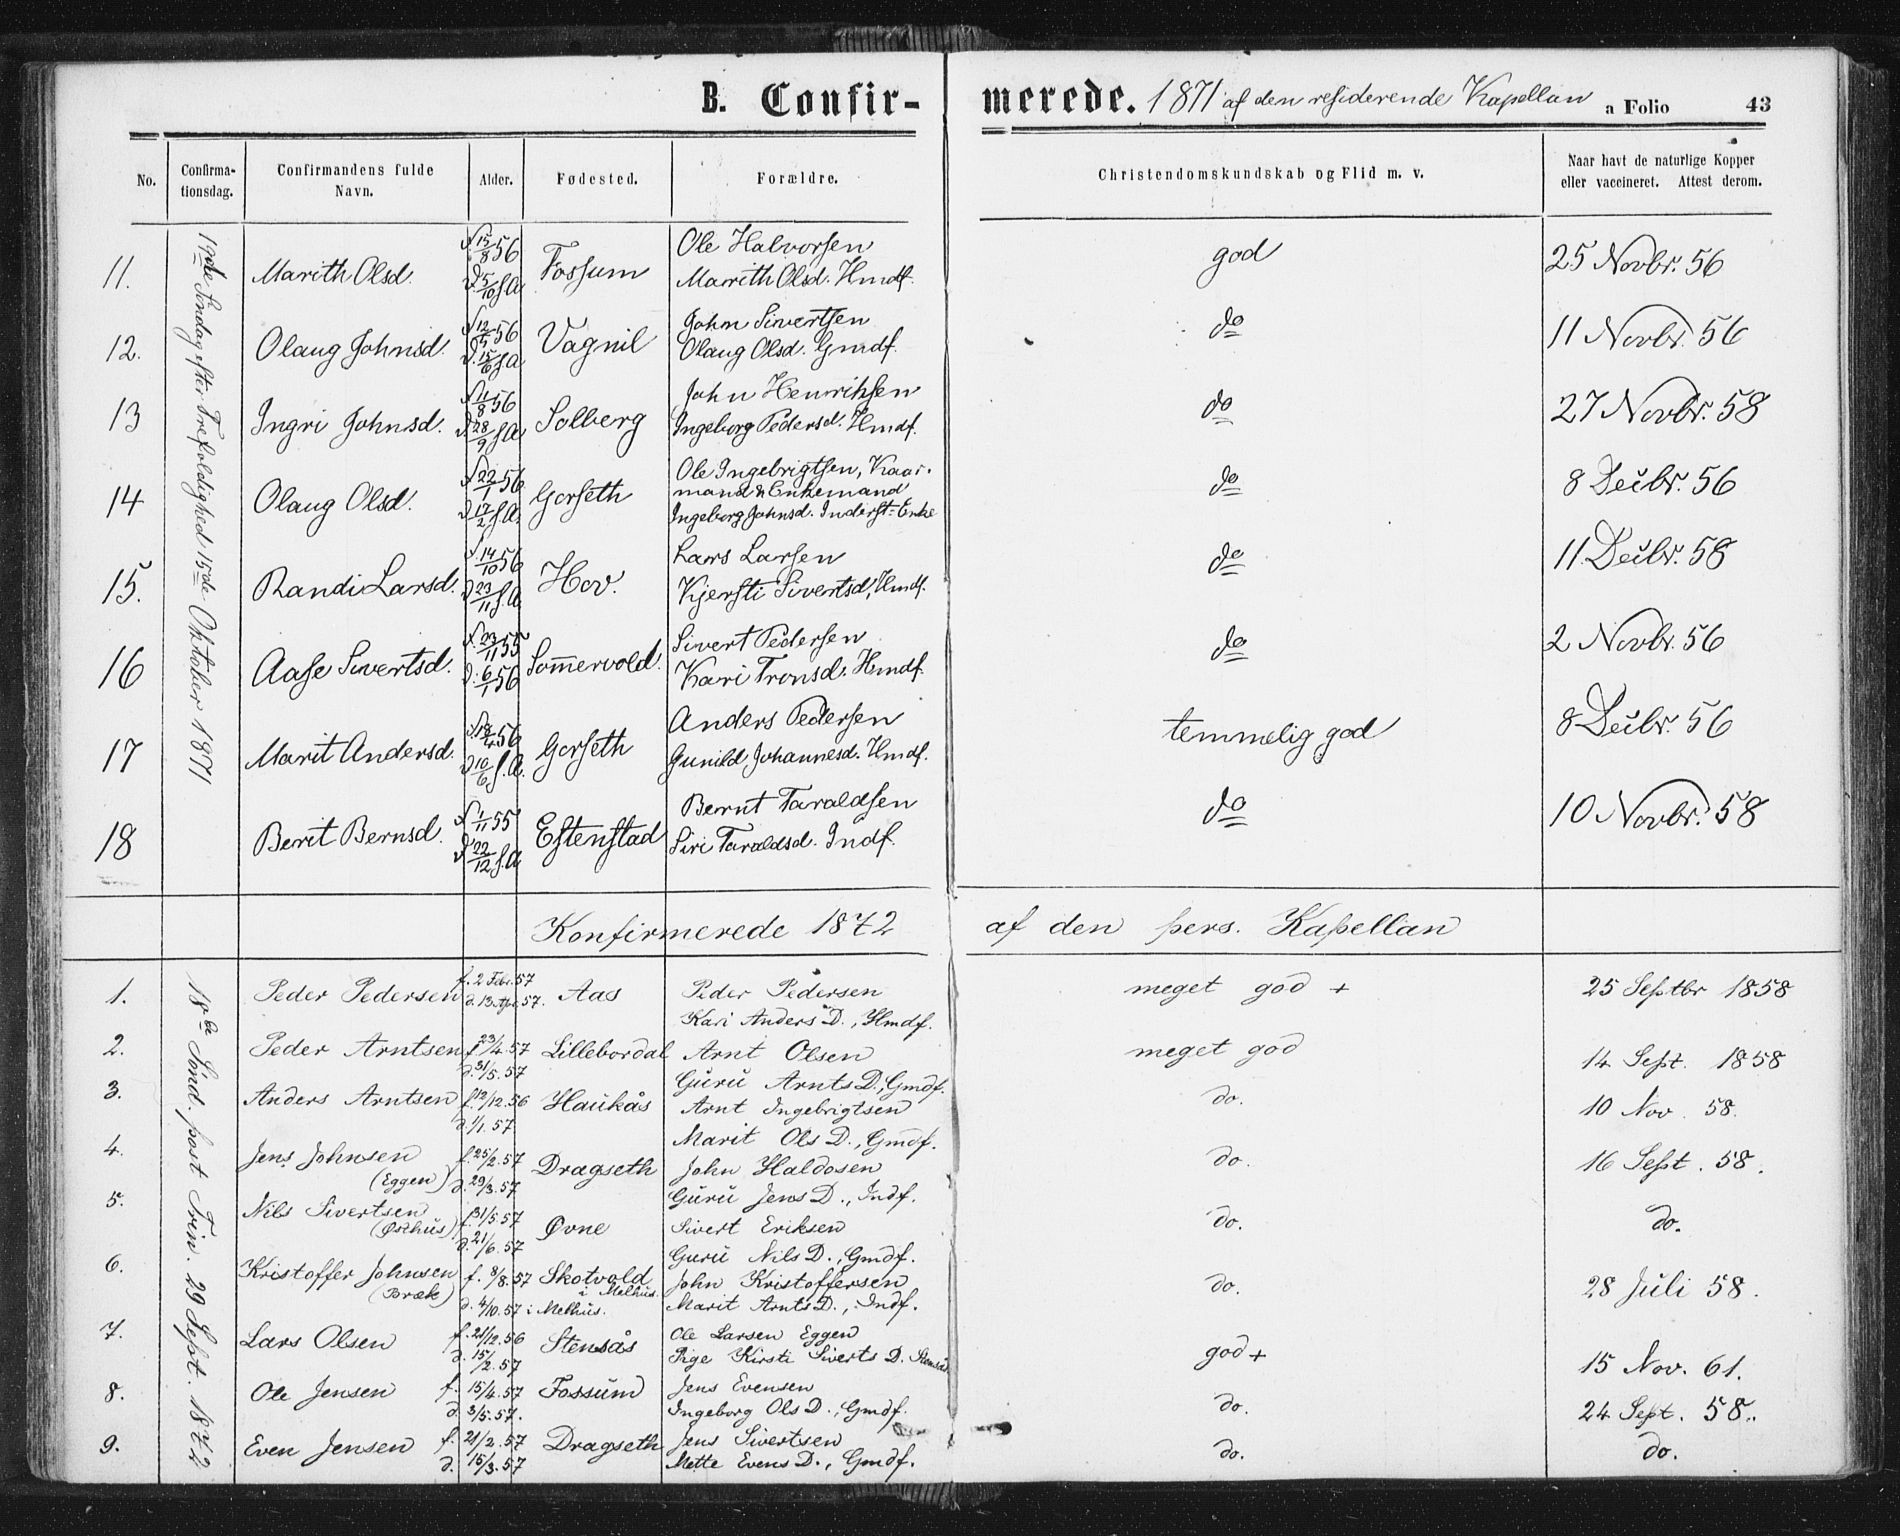 B. Confirmerede. 1871 af den residerende Kapellan a Folio 43
No. Confirmationsdag. Confirmandens fulde Navn. Alder. Fødested. Forældre. Christendomskundskab og Flid m. v. Naar havt de naturlige Kopper eller vaccineret. Attest derom.
19de Søndag efter Trefoldighed 15de Oktober 1871
11. Marith Olsd. f. 15/8 56 d. 5/10 s.A. Fossum Ole Halvorsen god 25 Novbr. 56
Marith Olsd. Hmdf.
12. Olaug Johnsd. f. 12/5 56 d. 15/6 s.A. Vagnil John Sivertsen do 11 Novbr. 56
Olaug Olsd. Gmdf.
13 Ingri Johnsd. f. 11/8 56 d. 28/9 s.A. Solberg John Henrichsen do 27 Novbr. 58
Ingeborg Pedersd. Hmdf.
14 Olaug Olsd. f. 22/1 56 d. 17/2 s.A. Gorseth Ole Ingebrigtsen, Kaar- do 8 Decbr. 56
mand & Enkemand
Ingeborg Johnsd. Inderst-Enke
15. Randi Larsd. f. 14/10 56 d. 23/11 s.A. Hov. Lars Larsen do 11 Decbr. 58
Kjersti Sivertsd, Hmdf.
16 Aase Sivertsd. f. 23/11 55 d. 6/1 56 Som̅ervold. Sivert Pedersen do 2 Novbr. 56
Kari Tronsd. Hmdf.
17 Marit Andersd. f. 18/4 56 d. 10/6 s.A. Gorseth Anders Pedersen temmelig god 8 Decbr. 56
Gunild Johannesd. Hmdf.
18 Berit Bernsd. f. 1/11 55 d. 22/12 s.A. Estenstad Bernt Taraldsen do 10 Novbr. 58
Siri Taraldsd. Indf.
Konfirmerede 1872 af den pers. Kapellan
18de Sønd. post Trin. 29 Sept. 1872
1. Peder Pedersen f. 2 Febr. 57 d. 13 Apr. 57. Aas Peder Pedersen meget god + 25 Septbr 1858
Kari Anders D., Hmdf.
2. Peder Arntsen f. 23/4. 57 d. 31/5. 57 Lillebordal Arnt Olsen meget god 14 Sept. 1858
Guru Arnts D., Gmdf.
3. Anders Arntsen f. 12/12. 56 d. 1/1. 57 Haukås Arnt Ingebrigtsen do. 10 Nov. 58.
Marit Ols D., Gmdf.
4. Jens Johnsen (Eggen) f. 25/2. 57 d. 29/3. 57 Dragseth John Haldosen do. 16 Sept. 58.
Guru Jens D., Indf.
5. Nils Sivertsen (Østhus) f. 31/5. 57 d. 21/6. 57 Øvne Sivert Eriksen do. do.
Guru Nils D., Gmdf.
6. Kristoffer Johnsen (Bræk) f. 8/8. 57 d. 4/10. 57 i Melhus. Skotvold i Melhus. John Kristoffersen do. 28 Juli 58.
Marit Arnts D., Indf.
7. Lars Olsen f. 21/12. 56 d. 15/2. 57 Stensås Ole Larsen Eggen god + 15 Nov. 61.
Pige Kirsti Siverts D. Stensås
8. Ole Jensen f. 15/4. 57 d. 3/5. 57. Fossum Jens Evensen do. 24 Sept. 58.
Ingeborg Ols D., Gmdf.
9. Even Jensen f. 21/2. 57 d. 15/3. 57 Dragseth Jens Sivertsen do. do.
Mette Evens D., Gmdf.